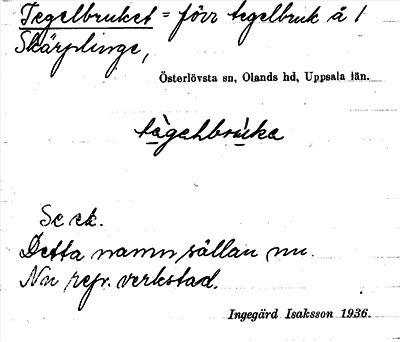 Tegelbruket = förv tegelbruk å 1
Skärplinge,
Österlövsta sn, Olands hd, Uppsala län.
tègehbrùka
Se ek.
Detta namn sällan nu.
Nu repr. verkstad.
Ingegärd Isaksson 1936.